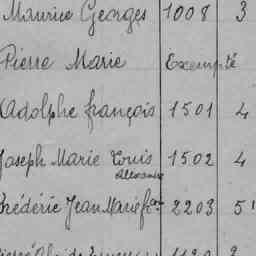 Maurice Georges 1008 3
Pierre Marie Exempté
Adolphe françois 1501 4
Joseph Marie Louis 1502 4
Alexandre
Frédéric Jean Marie fçois 2203 5